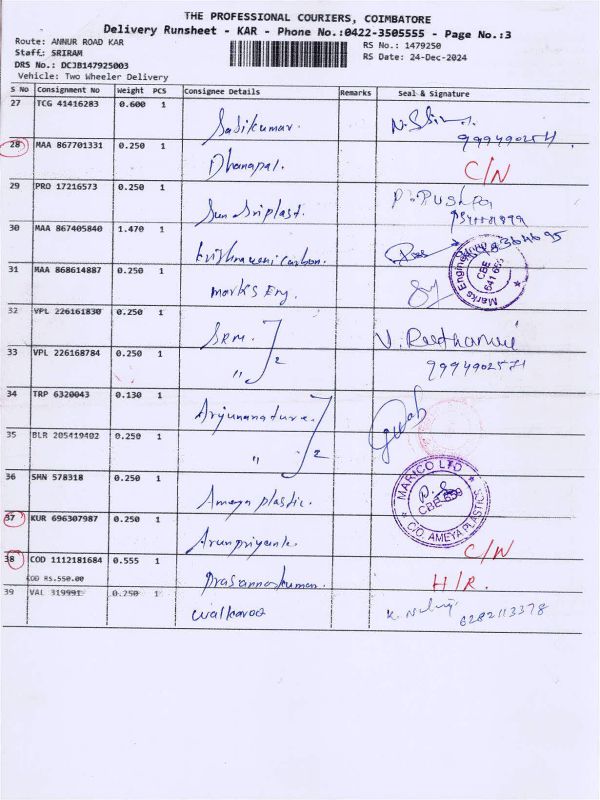 THE PROFESSIONAL COURIERS, COIMBATORE
Delivery Runsheet - KAR - Phone No.:0422-3505555 - Page No.:3
Route: ANNUR ROAD KAR
RS No.: 1479250
Staff.: SRIRAM
RS Date: 24-Dec-2024
DRS No.: DCJB147925003
Vehicle: Two Wheeler Delivery
S No Consignment No Weight PCS Consignee Details Remarks Seal & Signature
27 TCG 41416283 0.600 1
Sasikumar.
28 MAA 867701331 0.250 1
Dhanapal. C/N
29 PRO 17216573 0.250 1
Sun Sriplast. Pushpa
30 MAA 867405840 1.470 1
Krishnaveni Carbon.
31 MAA 868614887 0.250 1
Marks Eng. Marks Engineering CBE
32 VPL 226161830 0.250 1
SRM. V.
33 VPL 226168784 0.250 1
" 2
34 TRP 6320043 0.130 1
35 BLR 205419402 0.250 1
" 2
36 SMN 578318 0.250 1
Ameya plastic. MARICO LTD C/O. AMEYA PLASTIC
37 KUR 696307987 0.250 1
Arunpriyank. C/N
38 COD 1112181684 0.555 1
COD RS.550.00
Prasannakumar. H/R.
39 VAL 319991 0.250 1
Walkaroo 6282113378